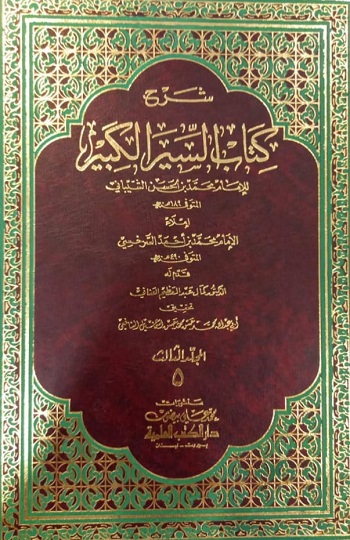 شرح
كتاب السير الكبير
للإمام محمد بن الحسن الشيباني
المتوفى ١٨٩ هـ
إملاء
الإمام محمد بن أحمد السرخسي
المتوفى ٤٩٠ هـ
قدم له
الدكتور كمال عبد العظيم العناني
تحقيق
أبي عبد الله محمد حسن محمد حسن إسماعيل الشافعي
المجلد الثالث
٥
منشورات
محمد علي بيضون
دار الكتب العلمية
بيروت - لبنان